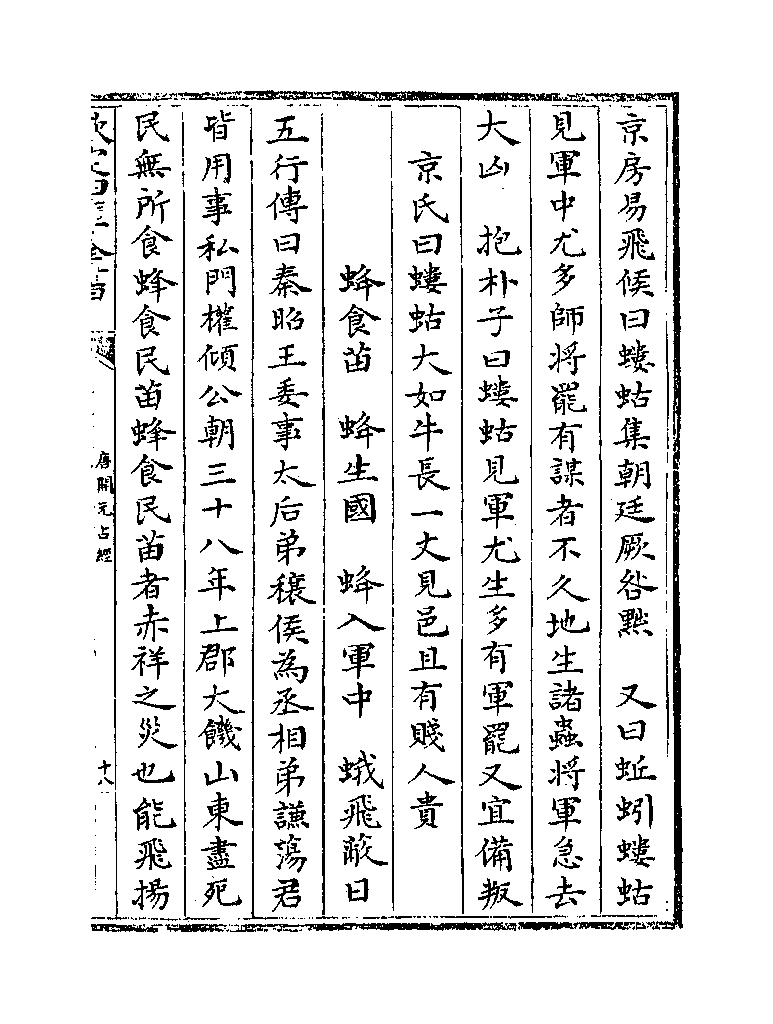 京房易飛候曰螻蛄集朝廷厥咎黙　又曰蚯蚓螻蛄
見軍中尤多師將罷有謀者不久地生諸蟲將軍急去
大凶　抱朴子曰螻蛄見軍尤生多有軍罷又宜備叛
京氏曰螻蛄大如牛長一丈見邑且有賤人貴
蜂食苗　蜂生國　蜂入軍中　蛾飛蔽日
五行傳曰秦昭王委事太后弟穰侯為丞相弟謙蕩君
皆用事私門權傾公朝三十八年上郡大饑山東盡死
民無所食蜂食民苗蜂食民苗者赤祥之災也能飛揚
唐開元占經
十八